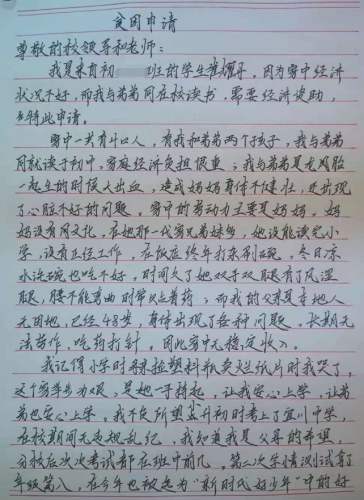 贫困申请
尊敬的校领导和老师:
我是来自初 班的学生 ,因为家中经济
状况不好,而我与弟弟同在校读书,需要经济资助,
特此申请。
家中一共有4口人,有我和弟弟两个孩子,我与弟弟
同就读于初中,家庭经济负担很重;我与弟弟是龙凤胎
一起生的时候大出血,造成妈妈身体不健壮,还出现
了心脏不好的问题,家中的劳动力主要是妈妈,妈
妈没有同文化,在她那一代家兄弟妹多,她没能读完小
学,没有正经工作,在饭店终年打杂刷碗,冬日凉
水洗碗也吃不好,时间久了她双手双腿有了风湿
腿,腰不能弯曲时常 着药;而我的父亲是本地人
无田地,已经48岁,身体出现了各种问题,长期无
法劳作,吃药打针,因此家中无稳定收入。
我记得小学时 捡塑料瓶卖烂纸片时我哭了,
这个家辛苦为艰,是她一手撑起,让我安心上学,让弟
弟也安心上学。我不负所望在升初时考上了宜川中学,
在校期间无违规乱纪,我知道我是父母的希望,
分校后次次考试都在班中前几,第二次学情测试考了
年级第八,在今年也被名为“新时代好少年”中的好